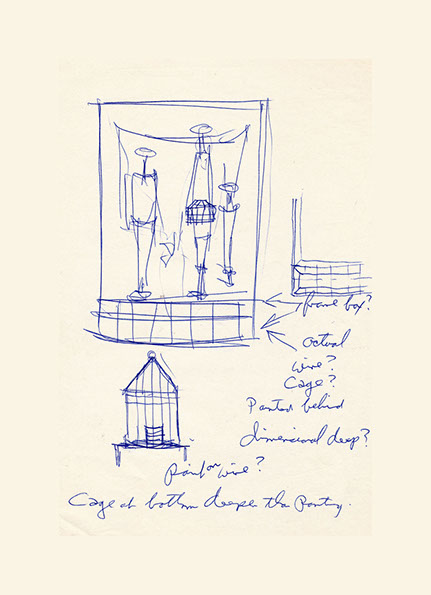 frame box?
actual
wire?
Cage?
behind
dimensional deep?
paint on wire?
Cage at bottom deeper than